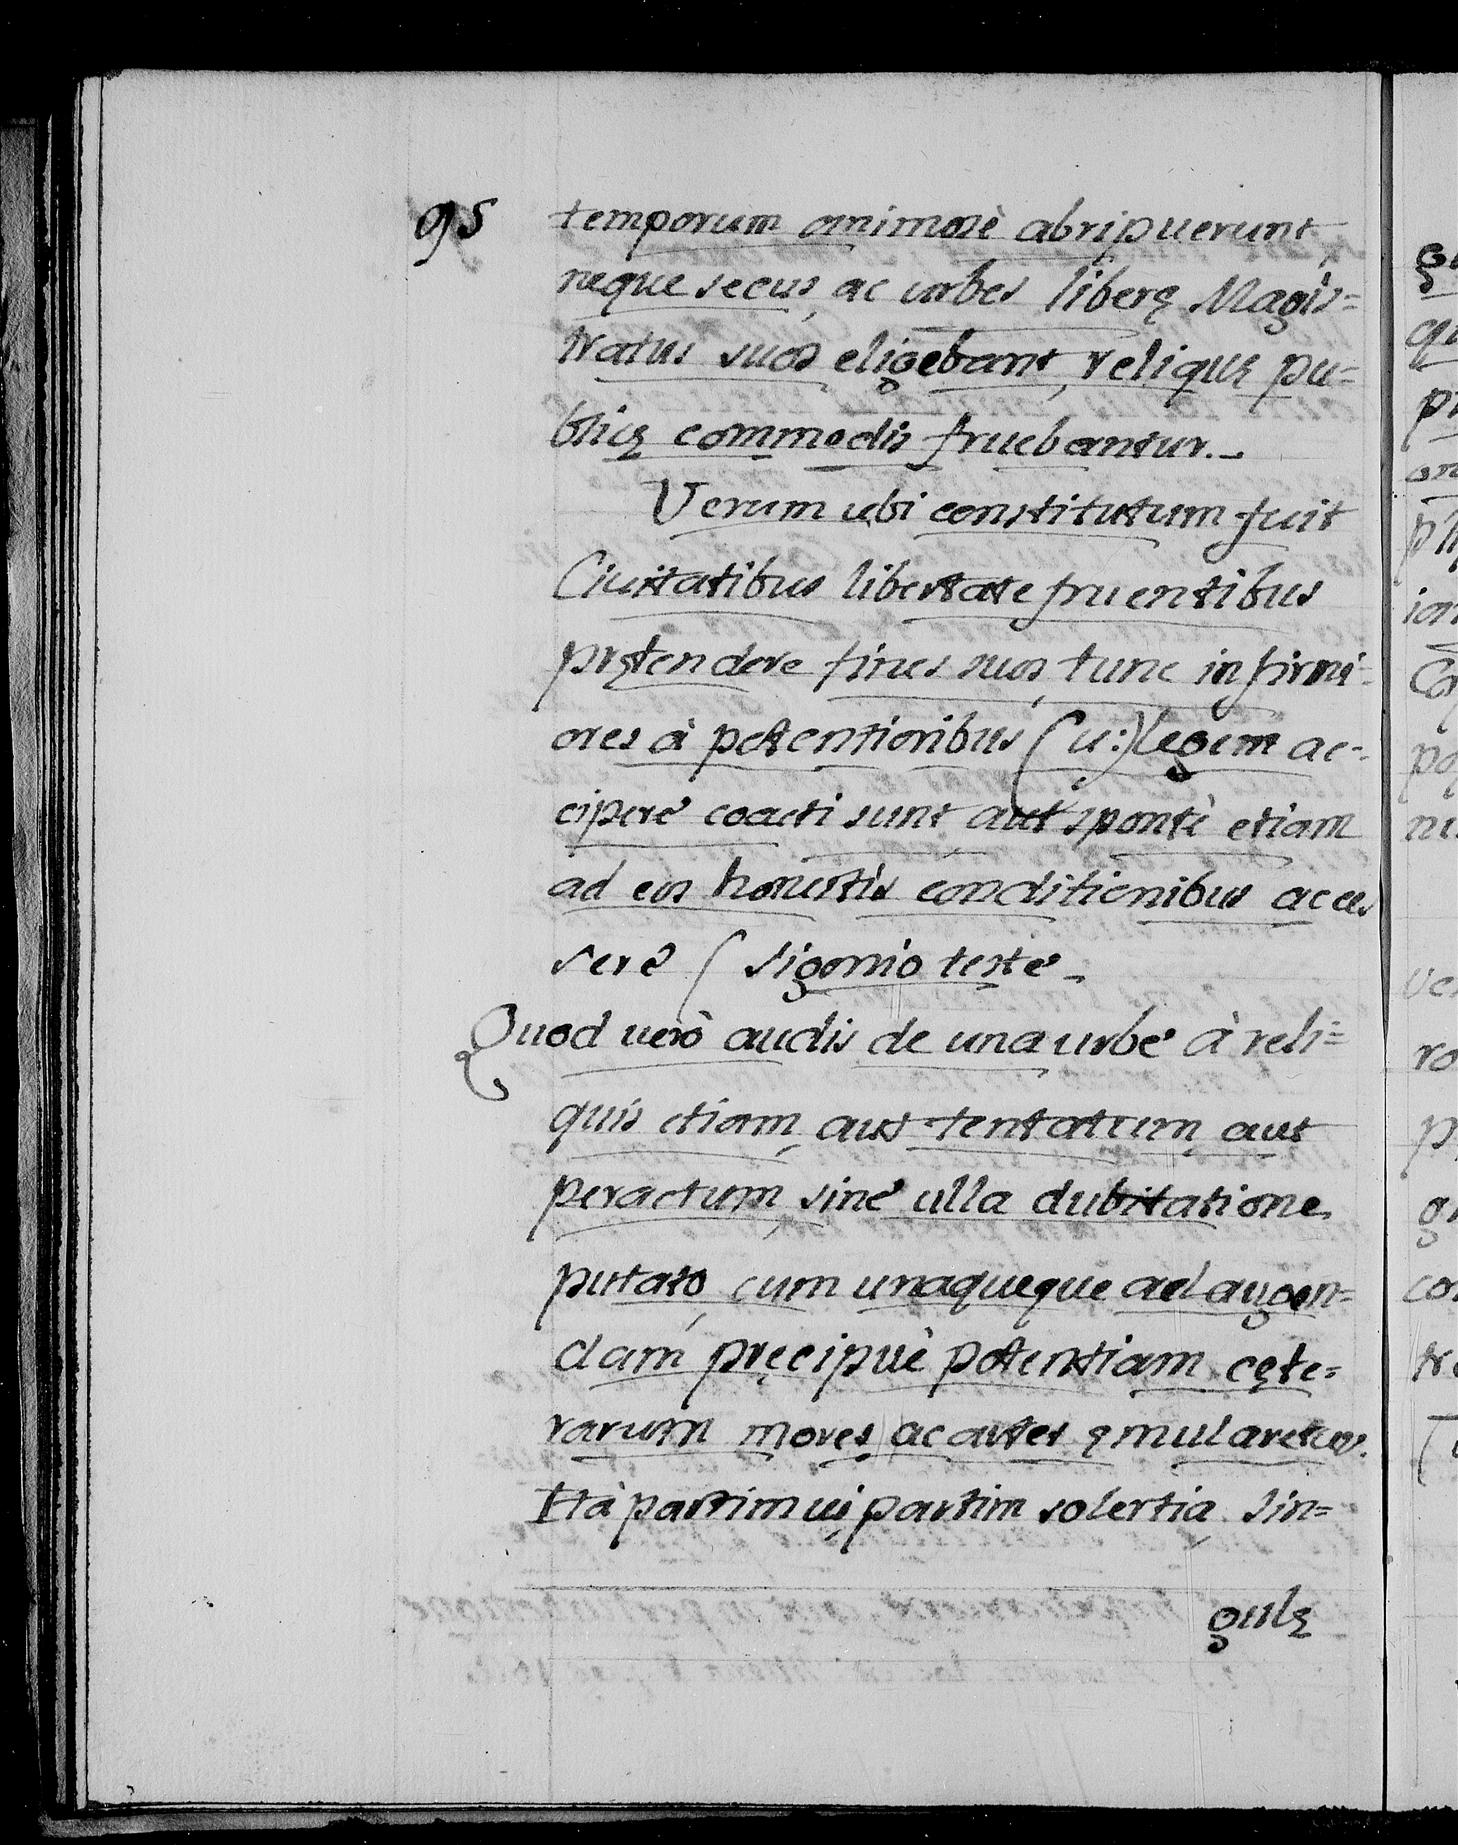 95 temporum animosè abripuerunt,
neque secus, ac urbes liberę Magis=
tratus suos eligebant, reliquę pu=
blicę commodis fruebantur._
Verum ubi constitutum fuit
Ciuitatibus libertate fruentibus
prętendere fines suos, tunc infirmi-
ores à potentioribus (u:) legem ac-
cipere coacti sunt aut spontè etiam
ad eos honestis conditionibus acces
sere ( Sigonio teste_
Quod uerò audis de una urbe à reli=
quis etiam, aut tentatum, aut
peractum, sine ulla dubitatione
putato, cum unaqueque ad augen=
dam pręcipuè potentiam cęte=
rarum mores ac artes ęmularetur.
Ità partim ui, partim solertia sin=
gulę